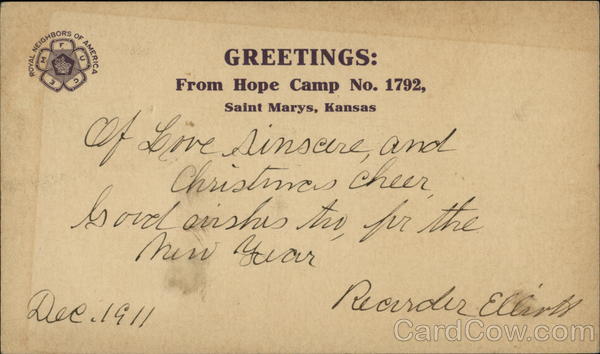 ROYAL NEIGHBORS OF AMERICA
F U C E M
GREETINGS:
From Hope Camp No. 1792,
Saint Marys, Kansas
Of Love sinscere, and
Christmas cheer,
Good wishes too, for the
New Year
Dec. 1911
Recorder Elliott
CardCow.com